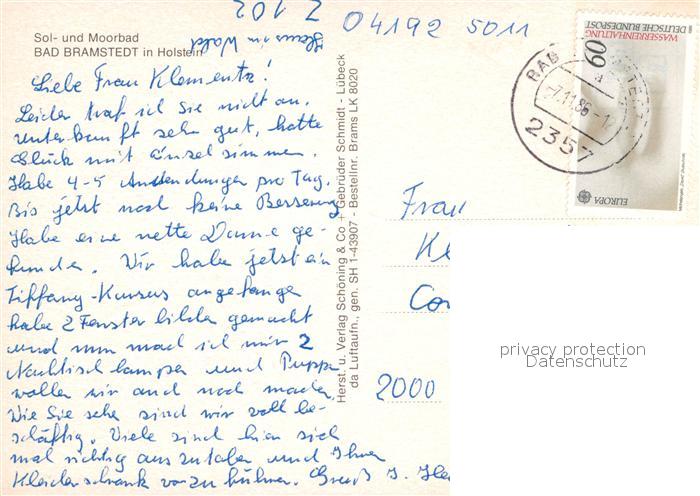 Z 102
Haus im Wald
04192 5011
Sol- und Moorbad
BAD BRAMSTEDT in Holstein
Liebe Frau Klementz!
Leider traf ich Sie nicht an.
Unterkunft sehr gut, hatte
Glück mit Einzelzimmer.
Habe 4-5 Anwendungen pro Tag.
Bis jetzt noch keine Besserung
Habe eine nette Dame ge-
funden. Wir haben jetzt ein
Tiffany-Kursus angefange
habe 2 Fensterbilder gemacht
und nun mach ich mir 2
Nachtischlampen und Puppe
wollen wir auch noch machen
Wie Sie sehe sind wir voll be-
schäftig. Viele sind hier sich
mal richtig auszutoben und Ihren
Kleiderschrank vorzuführen. Gruß I.
Herst. u. Verlag Schöning & Co + Gebrüder Schmidt - Lübeck
da Luftaufn., gen. SH 1-43907 - Bestellnr. Brams LK 8020
DEUTSCHE BUNDESPOST
WASSERREINHALTUNG
60
EUROPA
BAD
-7.11.86-1
2357
Frau
Kl
Co
2000
privacy protection
Datenschutz